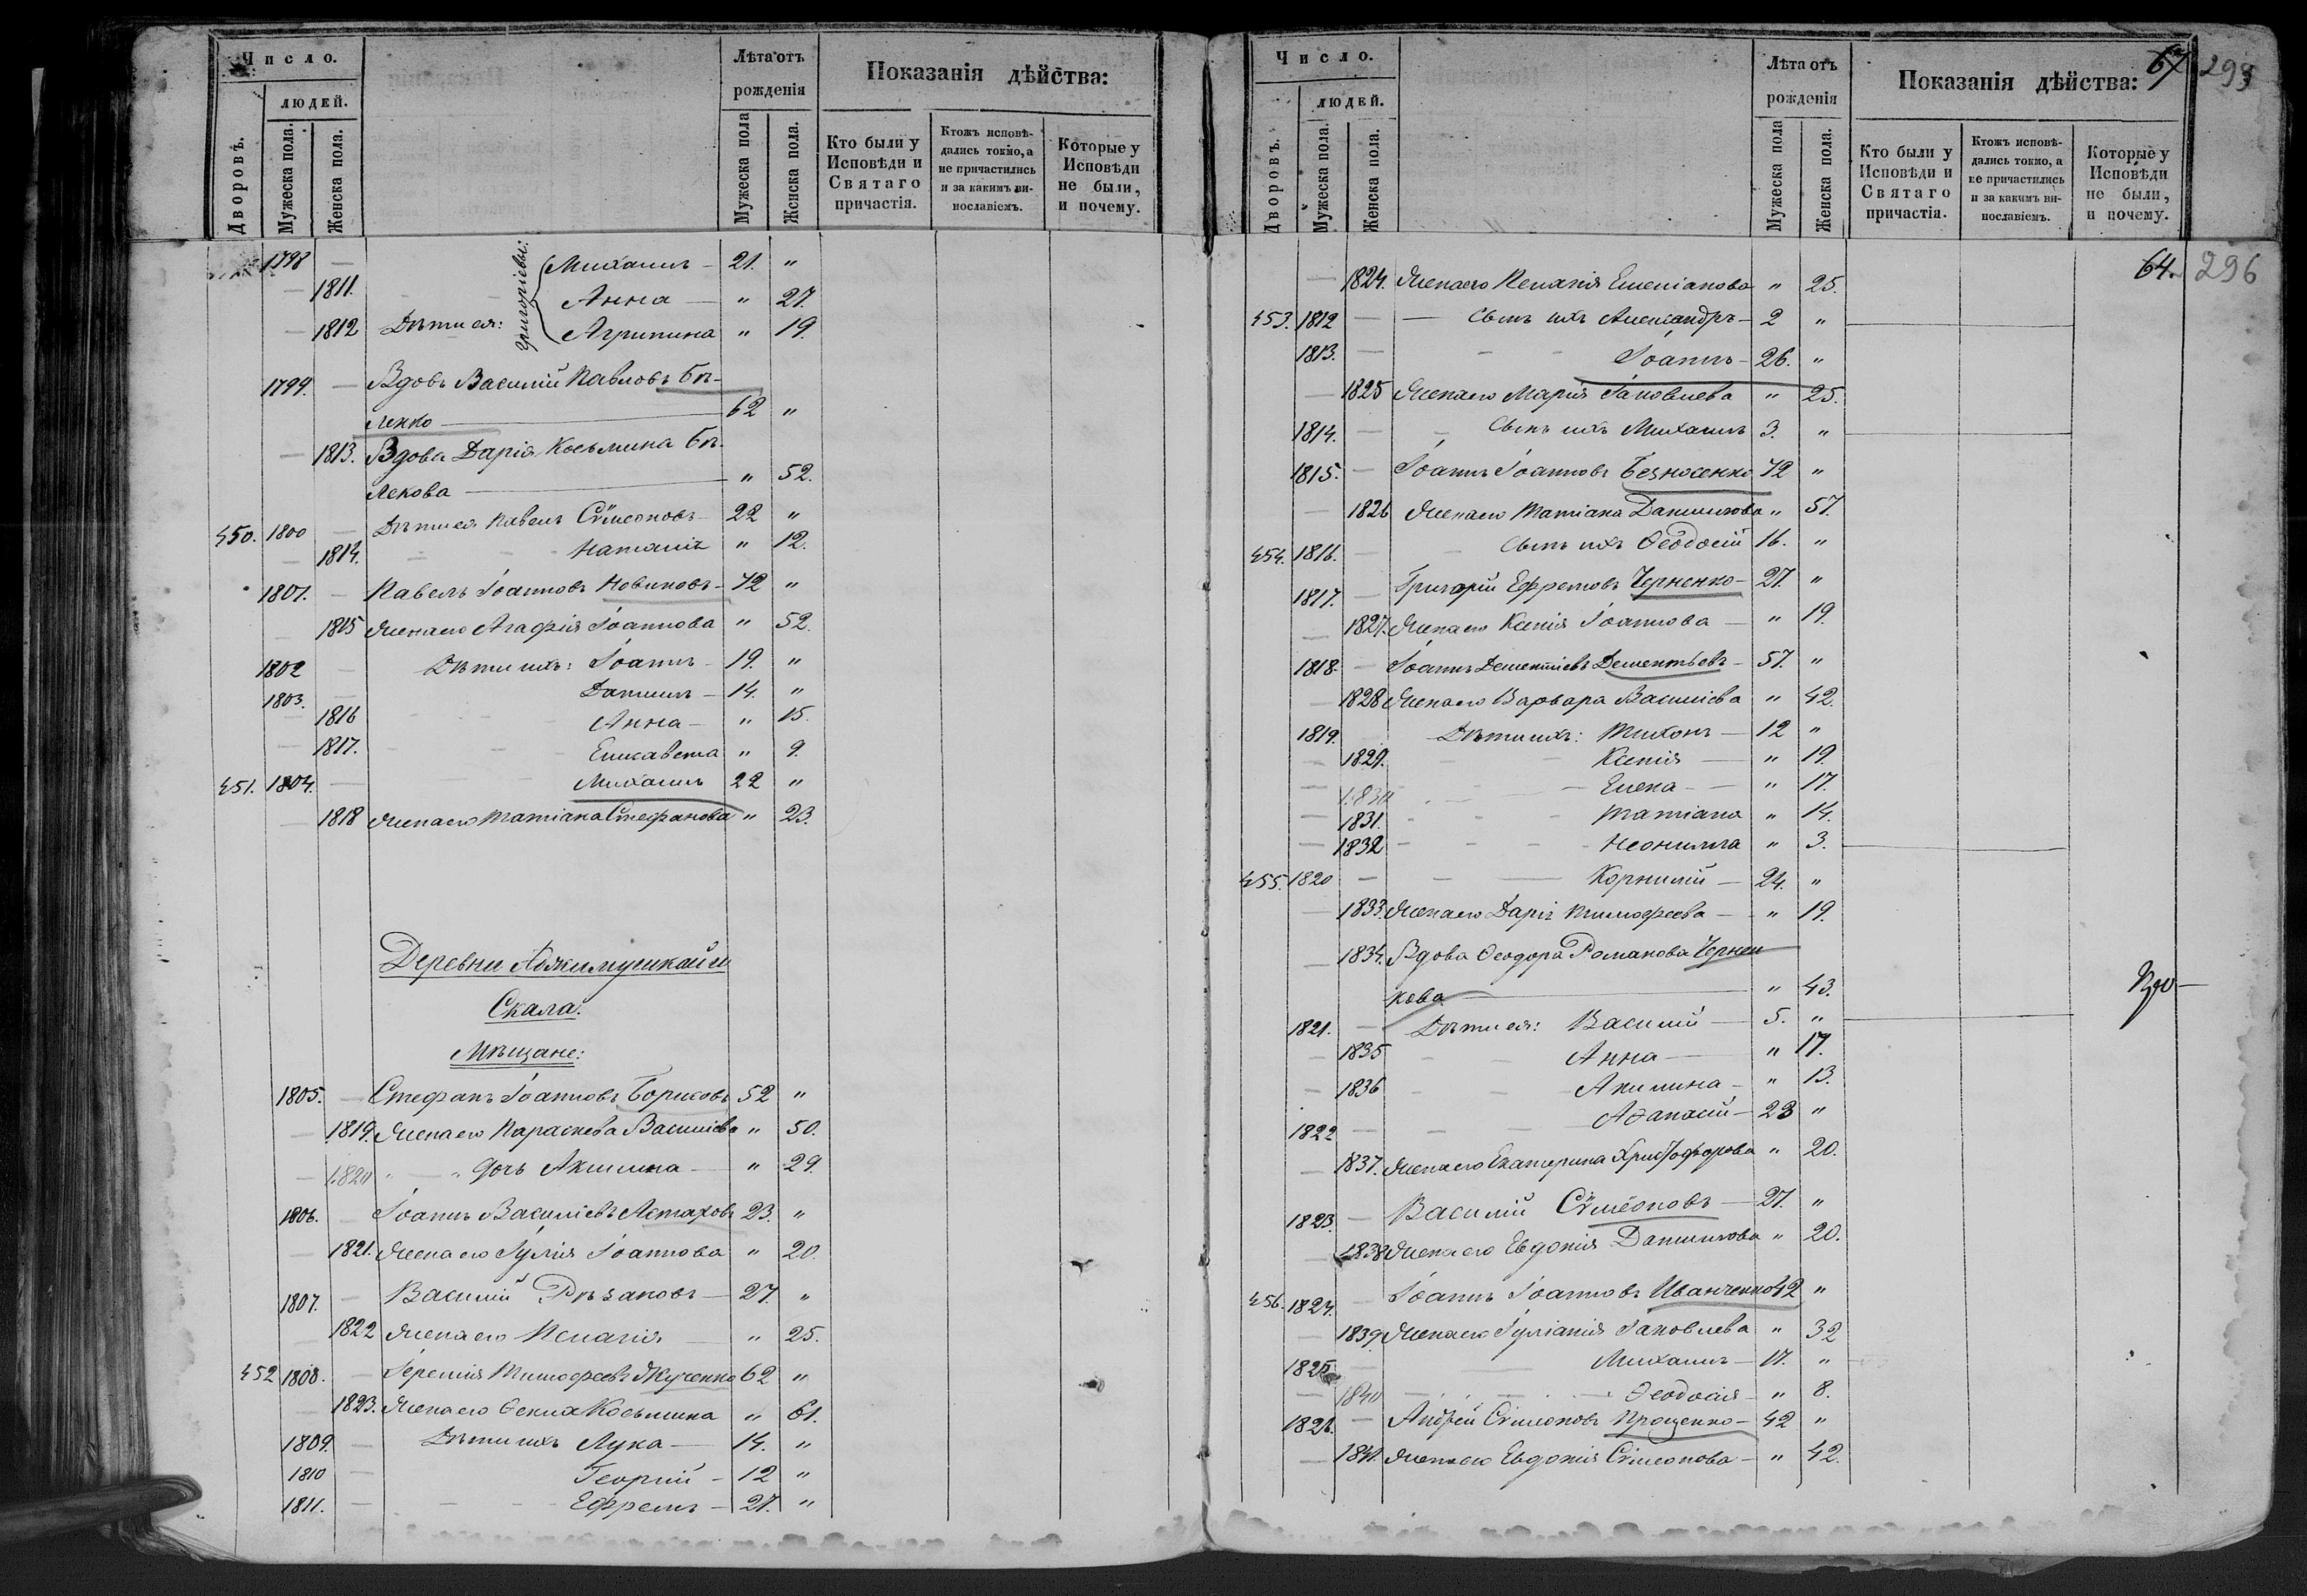 Число.
людей.
Дворовъ.
Мужеска пола.
Женска пола.
Лѣта отъ
рожденія
Мужеска пола
Женска пола.
Показанія дѣйства:
Кто были у
Исповѣди и
Святаго
причастія.
Ктожъ исповѣ-
дались токмо, а
не причастились
и за какимъ ви-
нословіемъ.
Которые у
Исповѣди
не были,
и почему.
1798 — Михаилъ — 21. "
Григоріевы:
— 1811. Анна — " 27.
— 1812 Дѣти ея: Агрипина " 19.
1799. — Вдовъ Василій Павловъ Бѣ-
ленко — 62 "
— 1813. Вдова Дарія Косьмина Бѣ-
лекова — " 52.
450. 1800 — Дѣти ея Павелъ Сѵмеоновъ 22 "
— 1814. Наталія " 12.
1801. — Павелъ Іоанновъ Новиковъ — 72 "
1815 Жена его Агафія Іоаннова " 52.
1802 — Дѣти ихъ: Іоаннъ — 19. "
1803. — Даниилъ — 14. "
1816 Анна — " 15.
— 1817. Елисавета " 9.
451. 1804. — Михаилъ 22 "
— 1818 Жена его Татіана Стефанова " 23.
Деревни Аджимушкай и
Скала:
Мѣщане:
1805. — Стефанъ Іоанновъ Борисовъ 52 "
— 1819. Жена его Параскева Василіева " 50.
— 1820 " — " дочь Акилина — " 29.
1806. — Іоаннъ Василіевъ Астаховъ 23. "
— 1821. Жена его Іулія Іоаннова " 20.
1807. — Василій Рѣзановъ — 27. "
1822 Жена его Пелагія — " 25.
452 1808. — Іеремія Тимофеевъ Жученко 62 "
— 1823. Жена его Ѳекла Косьмина " 61.
1809. — Дѣти ихъ Лука — 14. "
1810 — Георгій — 12 "
1811. — Ефремъ — 27. "
Число.
людей.
Дворовъ.
Мужеска пола.
Женска пола.
Лѣта отъ
рожденія
Мужеска пола
Женска пола.
Показанія дѣйства:
67
Кто были у
Исповѣди и
Святаго
причастія.
Ктожъ исповѣ-
дались токмо, а
не причастились
и за какимъ ви-
нославіемъ.
Которые у
Исповѣди
не были,
и почему.
64. 296
— 1824. Жена его Пелагія Емеліанова " 25.
453. 1812 — — Сынъ ихъ Александръ — 2 "
1813. — Іоаннъ — 26. "
— 1825 Жена его Марія Іаковлева " 25.
1814. — Сынъ ихъ Михаилъ 3. "
1815. — Іоаннъ Іоанновъ Безносенко 72 "
— 1826 Жена его Татіана Даниилова " 57.
454. 1816. — Сынъ ихъ Ѳеодосій 16. "
1817. — Григорій Ефремовъ Черненко — 27. "
— 1827. Жена его Ксенія Іоаннова — " 19.
1818. — Іоаннъ Дементіевъ Дементьевъ — 57. "
— 1828 Жена его Варвара Василіева " 42.
1819. Дѣти ихъ: Тихонъ — 12 "
— 1829. Ксенія — " 19.
— 1830 Елена — " 17.
— 1831. Татіана " 14.
— 1832 Неонилла " 3.
455. 1820 — Корнилій — 24. "
— 1833. Жена его Дарія Тимофеева — " 19.
— 1834. Вдова Ѳеодора Романова Чернен
кова — " 43.
1821. — Дѣти ея: Василій — 5. "
— 1835 Анна — " 17.
— 1836 Акилина — " 13.
1822 — Аѳанасій — 23 "
— 1837. Жена его Екатерина Христофорова " 20.
1823. — Василій Сѵмеоновъ — 27. "
— 1838 Жена его Евдокія Даниилова " 20.
456. 1824. — Іоаннъ Іоанновъ Иванченко 42 "
— 1839 Жена его Іуліанія Іаковлева " 32
1825 — Михаилъ — 17. "
— 1840 Ѳеодосія — " 8.
1826. — Андрей Сѵмеоновъ Прощенко — 42 "
— 1841. Жена его Евдокія Сѵмеонова — " 42.